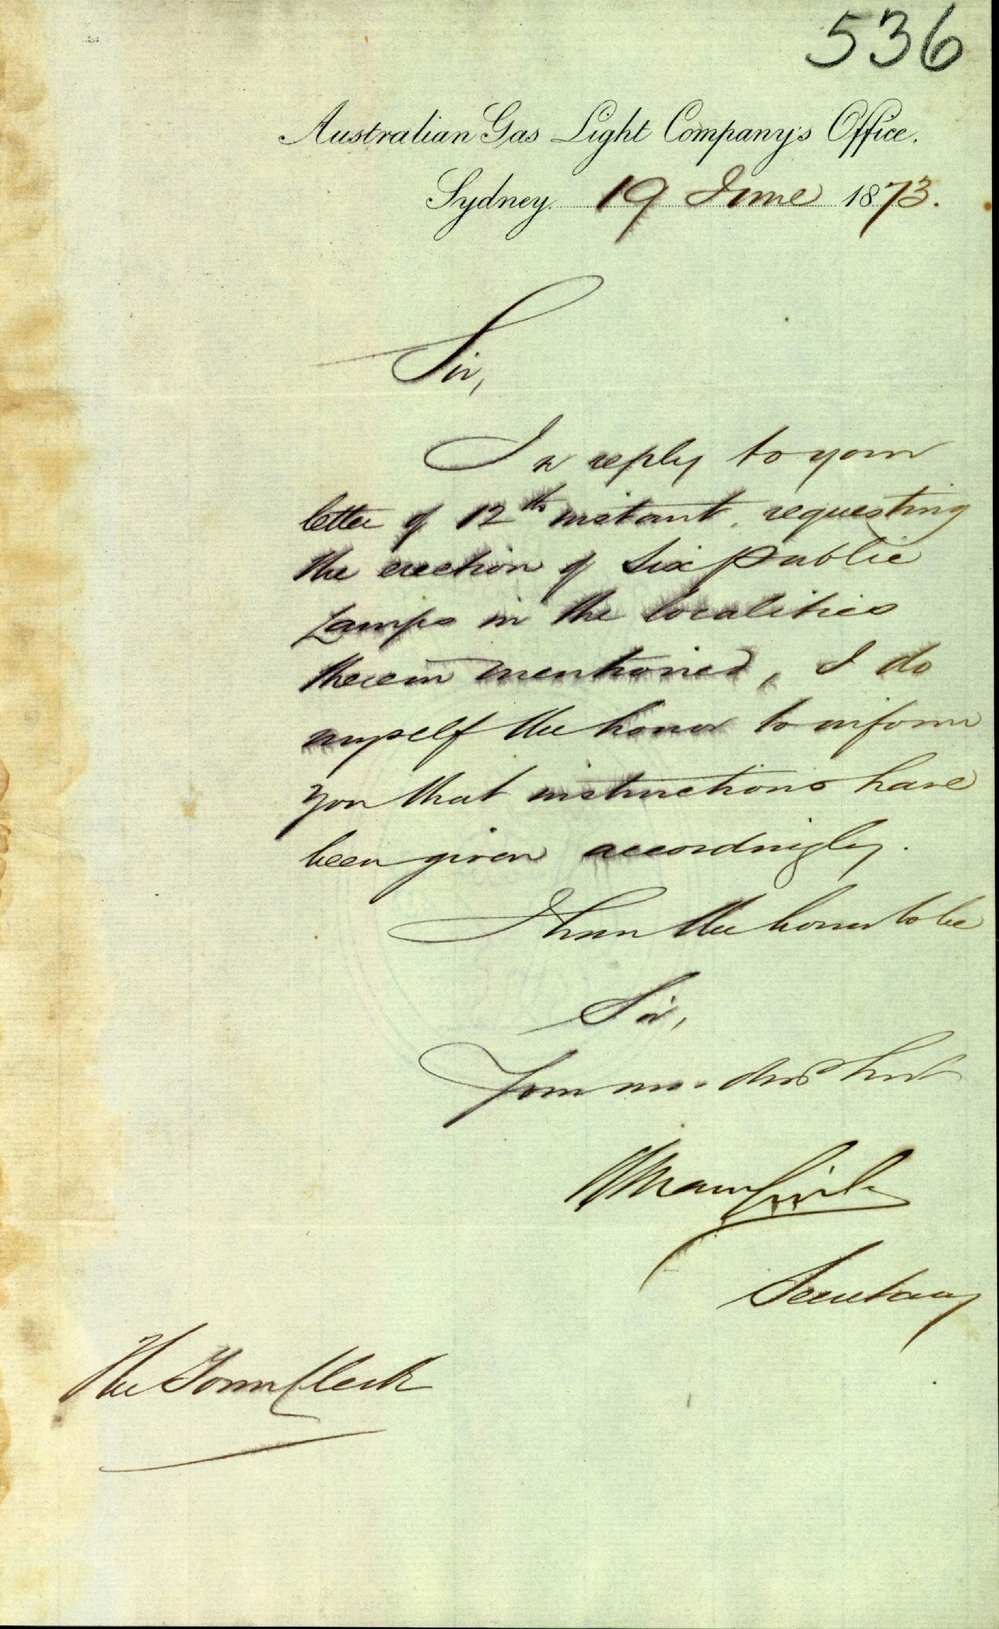 536
Australian Gas Light Company's Office.
Sydney. 19 June 1873.
Sir,
In reply to your
letter of 12th instant, requesting
the erection of Six Public
Lamps in the localities
therein mentioned, I do
myself the honor to inform
you that instructions have
been given accordingly.
I have the honor to be
Sir,
Your mo. obdt Servt
Secretary
The Town Clerk